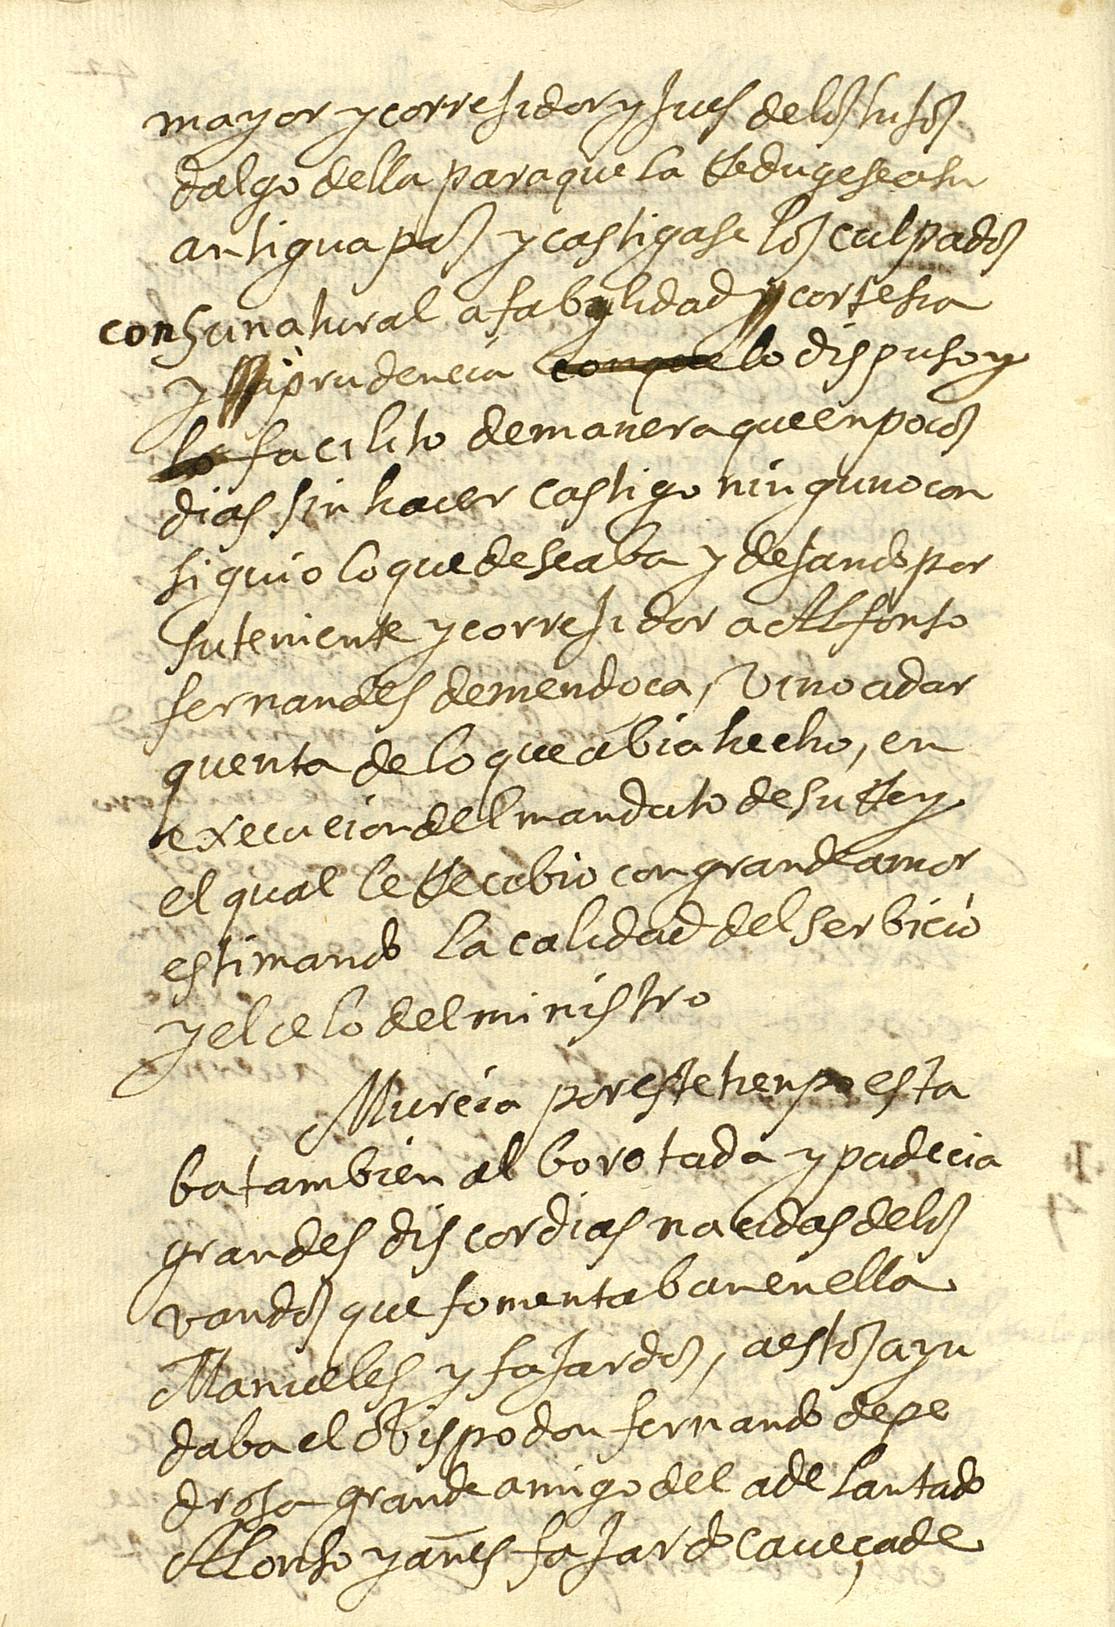 mayor y corresidor y Jues de los hisos
dalgo della para que la Redugese a su
antigua pas y castigase los culpados
con su natural afabylidad y cortesia
y prudencia con que lo dispuso y
lo facilito de manera que en pocos
dias sin hacer castigo ninguno con
siguio lo que deseaba y desando por
su teniente y corresidor a Alfonso
fernandes de mendoca, vino a dar
quenta de lo que abia hecho, en
execucion del mandato de su Rey
el qual le Recibio con grande amor
estimando la calidad del serbicio
y el celo del ministro
Murcia por este tienpo esta
ba tambien alborotada y padecia
grandes discordias nacidas de los
vandos que fomentaban en ella
Manueles y faJardos, a estos ayu
daba el obispo don fernando de pe
drosa grande amigo del adelantado
Alonso yañes faJardo caueça de